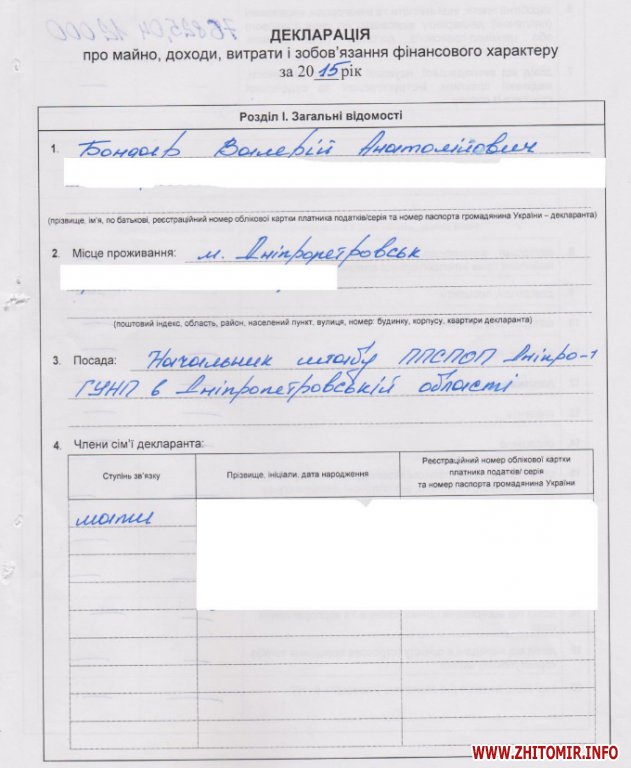 ДЕКЛАРАЦІЯ
про майно, доходи, витрати і зобов'язання фінансового характеру
за 2015 рік
Розділ І. Загальні відомості
1. Бондар Валерій Анатолійович
(прізвище, ім'я, по батькові, реєстраційний номер облікової картки платника податків/серія та номер паспорта громадянина України – декларанта)
2. Місце проживання: м. Дніпропетровськ
(поштовий індекс, область, район, населений пункт, вулиця, номер: будинку, корпусу, квартири декларанта)
3. Посада: Начальник штабу ППСПОП Дніпро-1
ГУНП в Дніпропетровській області
4. Члени сім'ї декларанта:
Ступінь зв'язку
Прізвище, ініціали, дата народження
Реєстраційний номер облікової картки
платника податків/ серія
та номер паспорта громадянина України
мати
WWW.ZHITOMIR.INFO